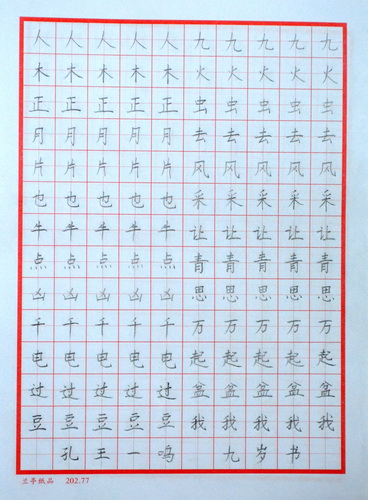 人人人人人九九九九九
木木木木木火火火火火
正正正正正虫虫虫虫虫
月月月月月去去去去去
片片片片片风风风风风
也也也也也采采采采采
牛牛牛牛牛让让让让让
点点点点点青青青青青
凶凶凶凶凶思思思思思
千千千千千万万万万万
电电电电电起起起起起
过过过过过盆盆盆盆盆
豆豆豆豆豆我我我我我
孔王一鸣 九岁书
兰亭纸品 202.77